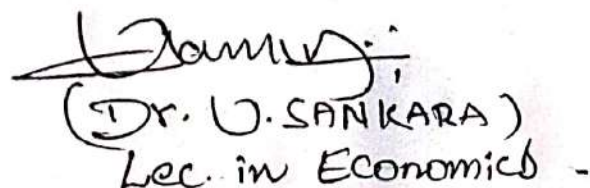 (Dr. U. SANKARA)
Lec. in Economics -